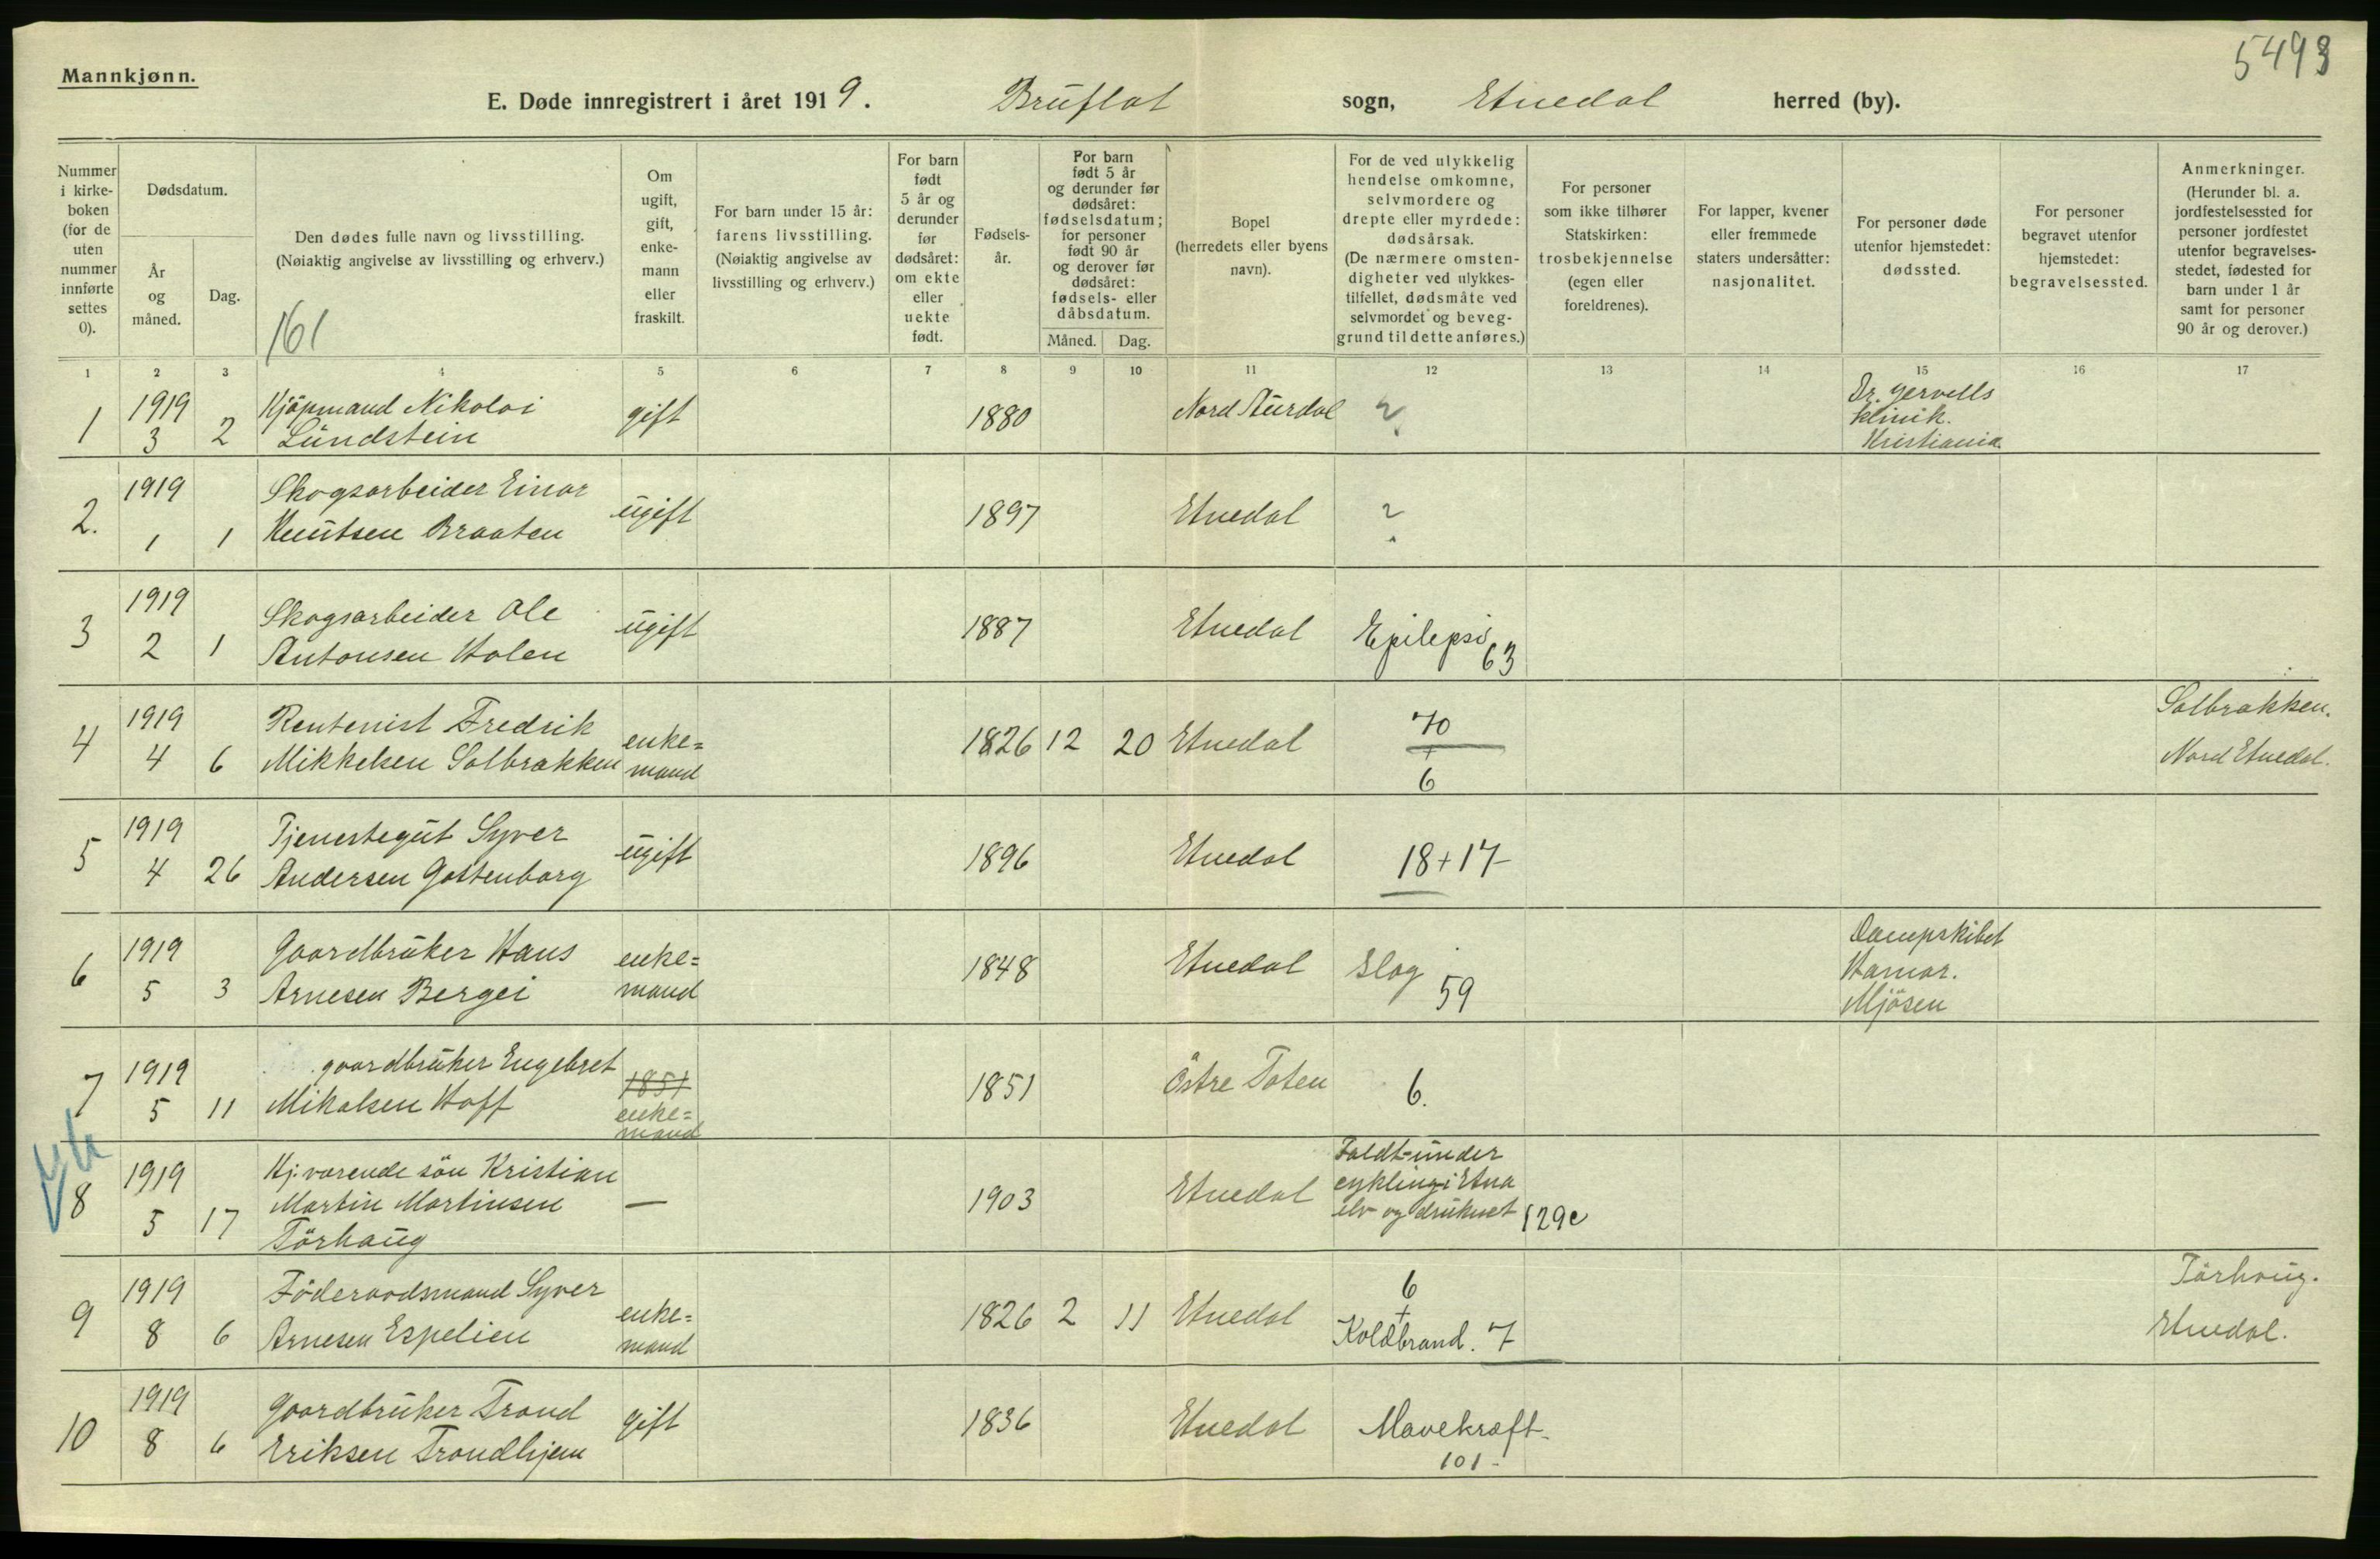 5493
Mannkjønn.
E. Døde innregistrert i året 1919. Bruflat sogn, Etnedal herred (by).
Nummer i kirke-boken (for de uten nummer innførte settes 0).
Dødsdatum.
År og måned.
Dag.
Den dødes fulle navn og livsstilling.
(Nøiaktig angivelse av livsstilling og erhverv.)
161
Om ugift, gift, enke-mann eller fraskilt.
For barn under 15 år: farens livsstilling. (Nøiaktig angivelse av livsstilling og erhverv.)
For barn født 5 år og derunder før dødsåret: om ekte eller uekte født.
Fødsels-år.
For barn født 5 år og derunder før dødsåret: fødselsdatum; for personer født 90 år og derover før dødsåret: fødsels- eller dåbsdatum.
Måned. Dag.
Bopel (herredets eller byens navn).
For de ved ulykkelig hendelse omkomne, selvmordere og drepte eller myrdede: dødsårsak. (De nærmere omsten-digheter ved ulykkes-tilfellet, dødsmåte ved selvmordet og beveg-grund til dette anføres.)
For personer som ikke tilhører Statskirken: trosbekjennelse (egen eller foreldrenes).
For lapper, kvener eller fremmede staters undersåtter: nasjonalitet.
For personer døde utenfor hjemstedet: dødssted.
For personer begravet utenfor hjemstedet: begravelsessted.
Anmerkninger. (Herunder bl. a. jordfestelsessted for personer jordfestet utenfor begravelses-stedet, fødested for barn under 1 år samt for personer 90 år og derover.)
1 2 3 4 5 6 7 8 9 10 11 12 13 14 15 16 17
1 1919 3 2 Kjöpmand Nikolai Lundstein gift 1880 Nord Aurdal ? Dr. Gervells klinik. Kristiania
2. 1919 1 1 Skogsarbeider Einar Knutsen Braaten ugift 1897 Etnedal ?
3 1919 2 1 Skogsarbeider Ole Antonsen Holen ugift 1887 Etnedal Epilepsi 63
4 1919 4 6 Rentenist Fredrik Mikkelsen Solbrækken enke=mand 1826 12 20 Etnedal 70 + 6 Solbrækken. Nord Etnedal.
5 1919 4 26 Tjenestegut Syver Andersen Gottenborg ugift 1896 Etnedal 18+17
6 1919 5 3 Gaardbruker Hans Arnesen Bergei enke=mand 1848 Etnedal Slag 59 Dampskibet Hamar. Mjösen
7 1919 5 11 gaardbruker Engebret Mikalsen Hoff 1851 enke=mand 1851 Östre Toten 6.
8 1919 5 17 Hj.værende sön Kristian Martin Martinsen Törhaug — 1903 Etnedal Faldt under cykling i Etna elv og druknet 129c
9 1919 8 6 Föderaadsmand Syver Arnesen Espelien enke=mand 1826 2 11 Etnedal 6 + Koldbrand. 7 Törhaug. Etnedal.
10 1919 8 6 Gaardbruker Trond Eriksen Trondhjem gift 1836 Etnedal Mavekræft 101-